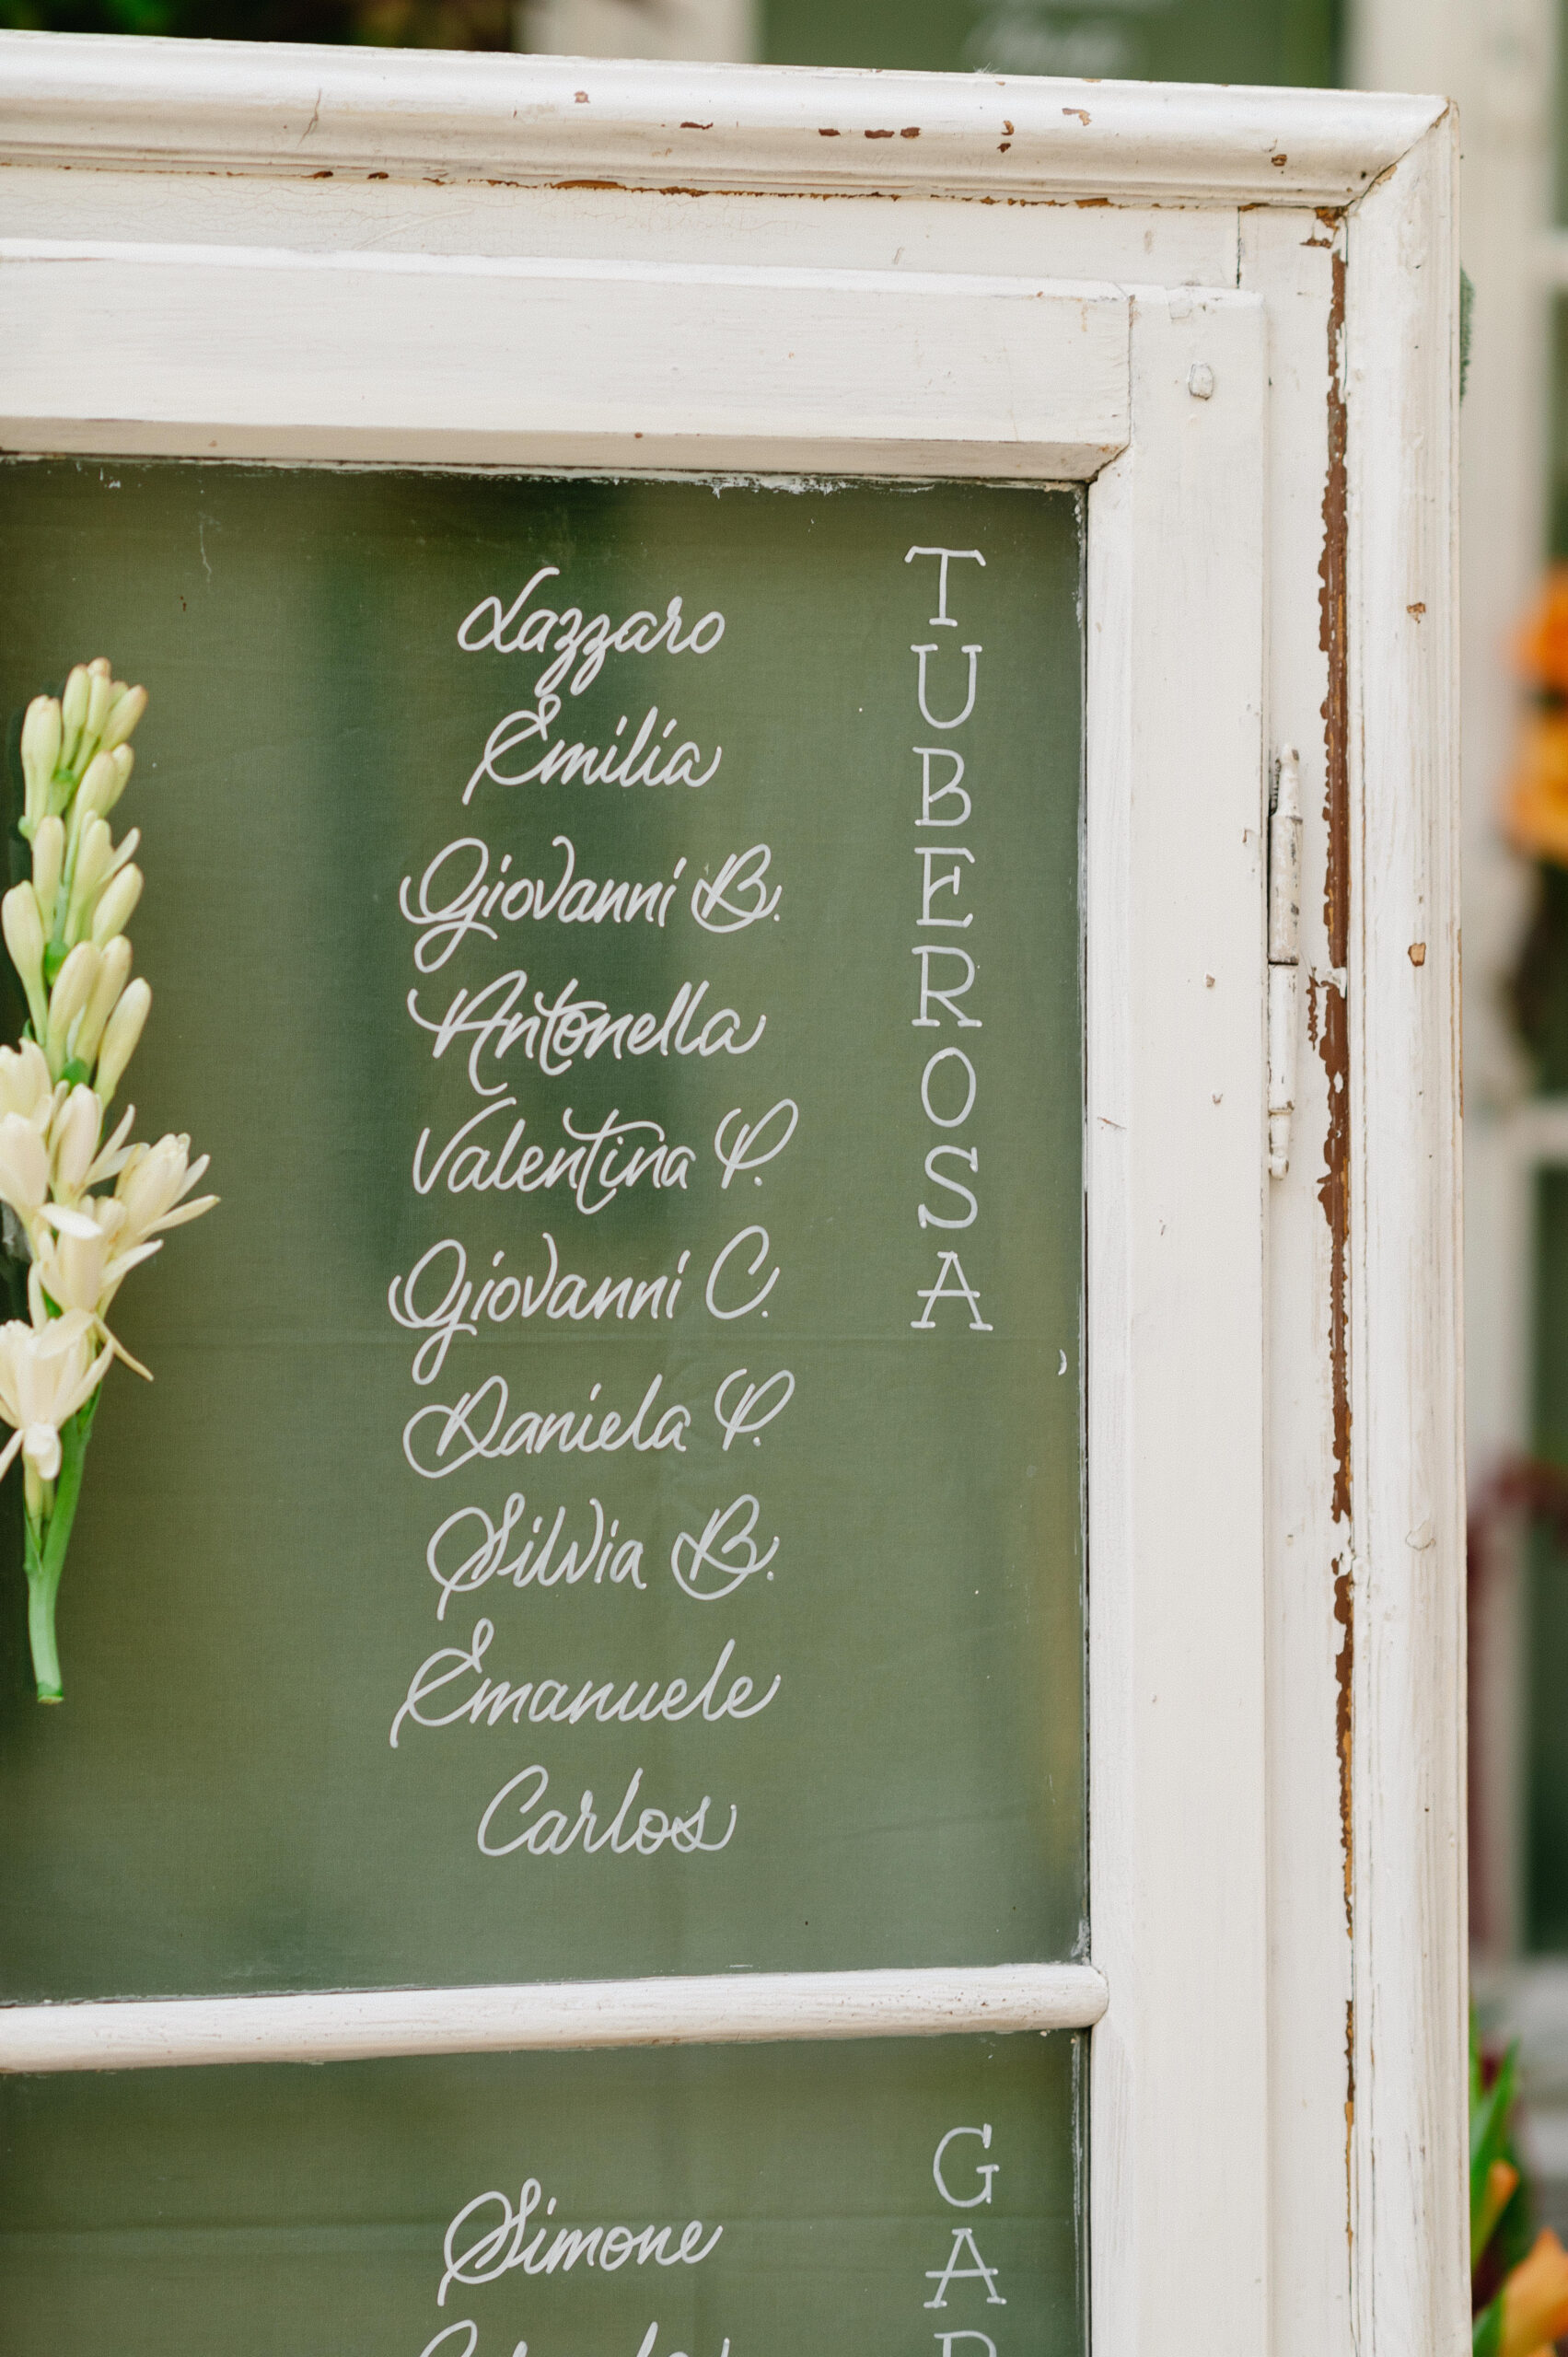 Lazzaro
Emilia
Giovanni B.
Antonella
Valentina P.
Giovanni C.
Daniela P.
Silvia B.
Emanuele
Carlos
TUBEROSA
Simone
GA